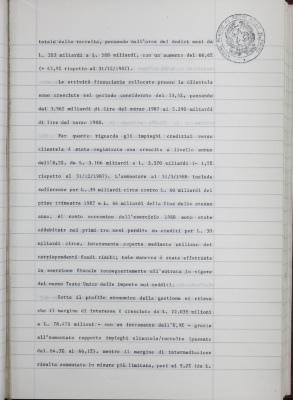 totale della raccolta, passando nell'arco dei dodici mesi da
L. 353 miliardi a L. 588 miliardi, con un aumento del 66,6%
rispetto al 31/12/1987).
Le attività finanziarie collocate presso la clientela
sono cresciute nel periodo considerato del 33,5%, passando
dai 3.962 miliardi di lire del marzo 1987 ai 5.290 miliardi
di lire del marzo 1988.
Per quanto riguarda gli impieghi creditizi verso
clientela è stata registrata una crescita a livello annuo
dell'6,9%, da L. 3.106 miliardi a L. 3.320 miliardi
rispetto al 31/12/1987). L'aumentare al 31/3/1988 include
sofferenze per L. 39 miliardi circa contro L. 60 miliardi del
primo trimestre 1987 e L. 46 miliardi della fine dello stesso
anno; al conto economico dell'esercizio 1988 sono state
addebitate nei primi tre mesi perdite su crediti per L. 30
miliardi circa, interamente coperte mediante utilizzo dei
corrispondenti fondi rischi; tale manovra è stata effettuata
in esenzione fiscale conseguentemente all'entrata in vigore
del nuovo Testo Unico delle imposte sui redditi.
Sotto il profilo economico della gestione si rileva
che il margine di interesse è cresciuto da L. 72.035 milioni
a L. 78.473 milioni - con un incremento dell'8,9% - grazie
all'aumentato rapporto impieghi clientela/raccolta (passato
dal 64,3% al 66,1%), mentre il margine di intermediazione
risulta aumentato in misura più limitata, pari al 5,2% (da L.